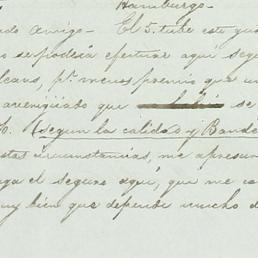 Hamburgo.
Amigo. El 5. tube este gus
no se podria efectuar aquí segu
, pr. menos premio que un
averigüado que se
(segun la calidad y Bande
stas circunstancias, me apresur
ga el seguro aquí, que me co
uy bien que depende mucho d